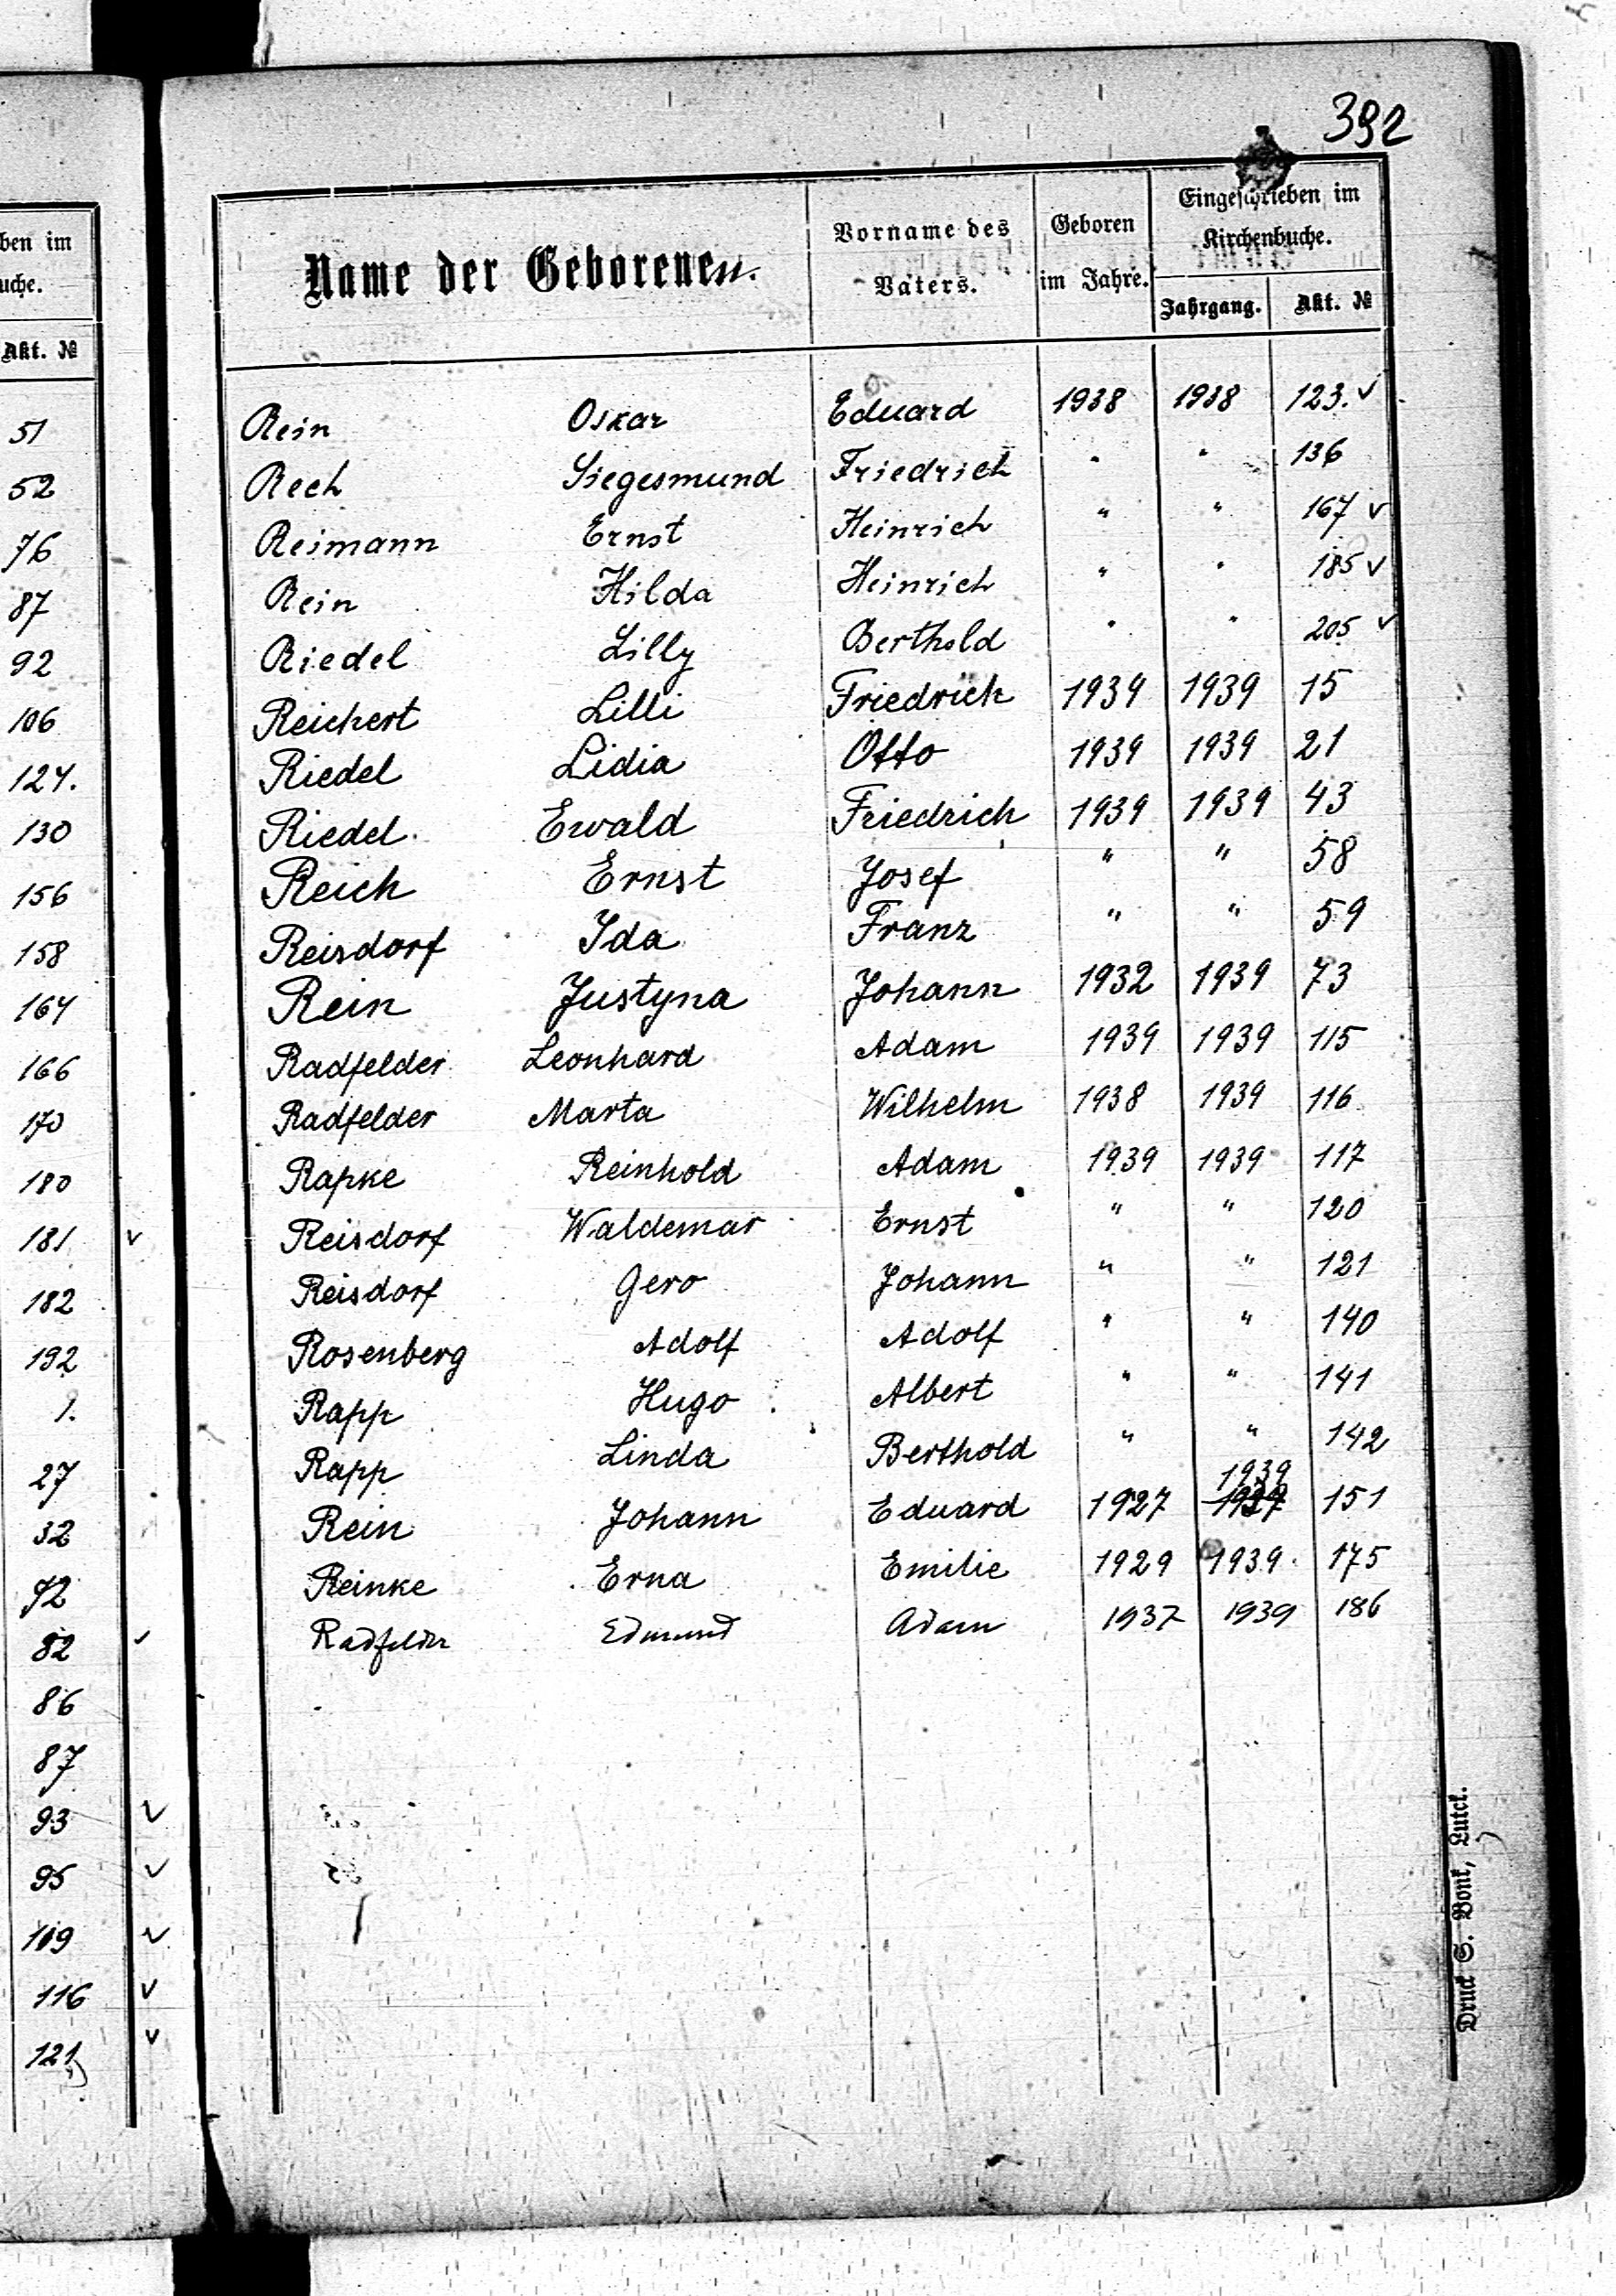 392
ben im
uche.
Akt. №
51
52
76
87
92
106
124.
130
156
158
164
166
170
180
181 v
182
192
1.
27
32
72
82 v
86
87
93 v
95 v
109 v
116 v
121
Name der Geborenen. Vorname des Vaters. Geboren im Jahre. Eingeschrieben im Kirchenbuche.
Jahrgang. Akt. №
Rein Oskar Eduard 1938 1938 123. v
Rech Siegesmund Friedrich " " 136
Reimann Ernst Heinrich " " 167 v
Rein Hilda Heinrich " " 185 v
Riedel Lilly Berthold " " 205 v
Reichert Lilli Friedrich 1939 1939 15
Riedel Lidia Otto 1939 1939 21
Riedel Ewald Friedrich 1939 1939 43
Reich Ernst Josef " " 58
Reisdorf Ida Franz " " 59
Rein Justyna Johann 1932 1939 73
Radfelder Leonhard Adam 1939 1939 115
Radfelder Marta Wilhelm 1938 1939 116
Rapke Reinhold Adam 1939 1939 117
Reisdorf Waldemar Ernst " " 120
Reisdorf Gero Johann " " 121
Rosenberg Adolf Adolf " " 140
Rapp Hugo Albert " " 141
Rapp Linda Berthold " " 142
1939
Rein Johann Eduard 1927 1927 151
Reinke Erna Emilie 1929 1939. 175
Radfelder Edmund Adam 1937 1939 186
Druck S. Bonk, Lutck.